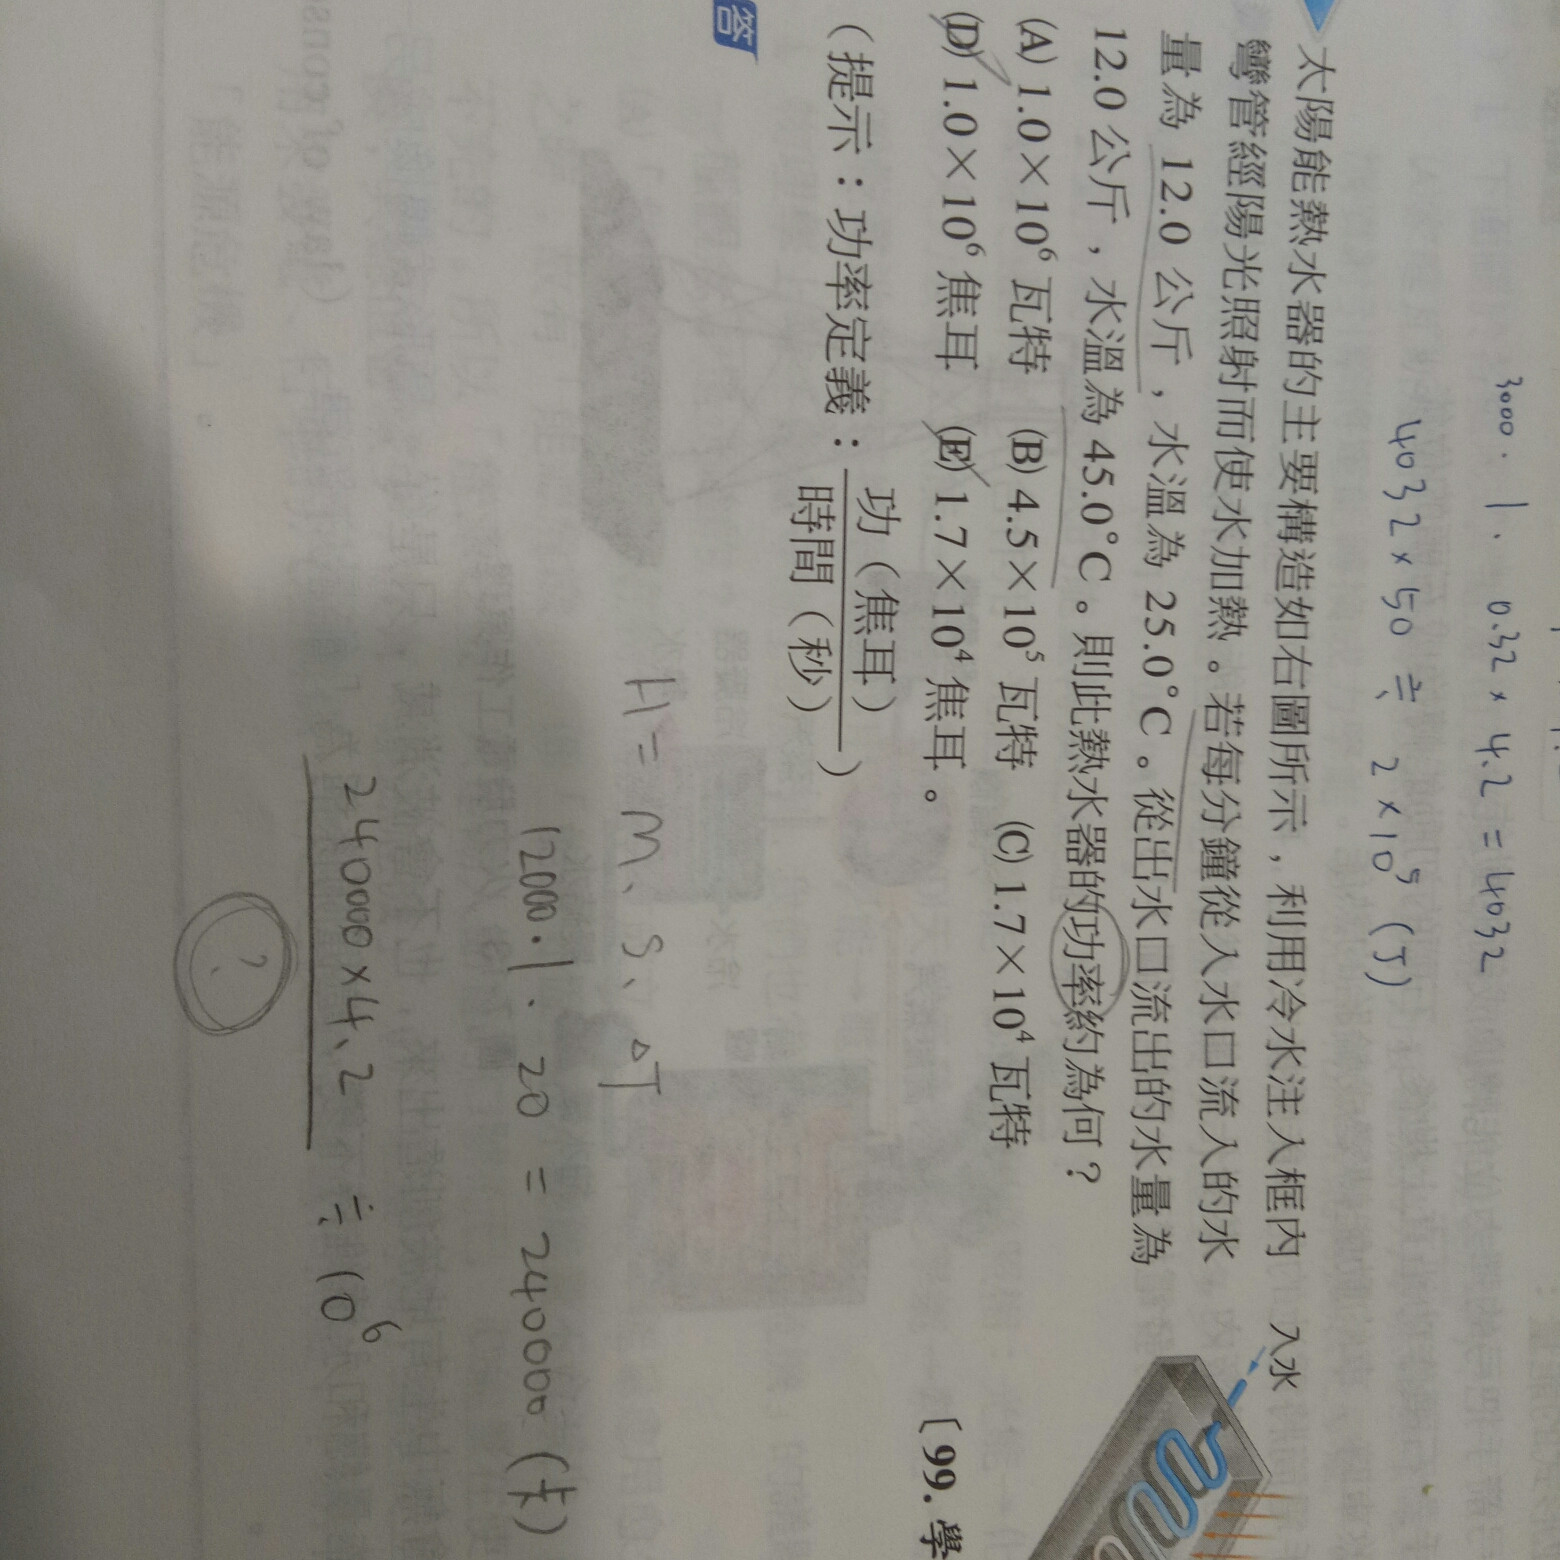 3000 · 1 · 0.32 × 4.2 = 4032
4032 × 50 ≒ 2 × 10⁵ (J)
太陽能熱水器的主要構造如右圖所示，利用冷水注入框內
彎管經陽光照射而使水加熱。若每分鐘從入水口流入的水
量為 12.0 公斤，水溫為 25.0°C。從出水口流出的水量為
12.0 公斤，水溫為 45.0°C。則此熱水器的功率約為何？
(A) 1.0×10⁶ 瓦特 (B) 4.5×10⁵ 瓦特 (C) 1.7×10⁴ 瓦特
(D) 1.0×10⁶ 焦耳 (E) 1.7×10⁴ 焦耳。
〔99.學
入水
（提示：功率定義：功（焦耳）/時間（秒））
答
H = m、s、△T
12000 · 1 · 20 = 240000 (卡)
240000 × 4.2 ≒ 10⁶
?